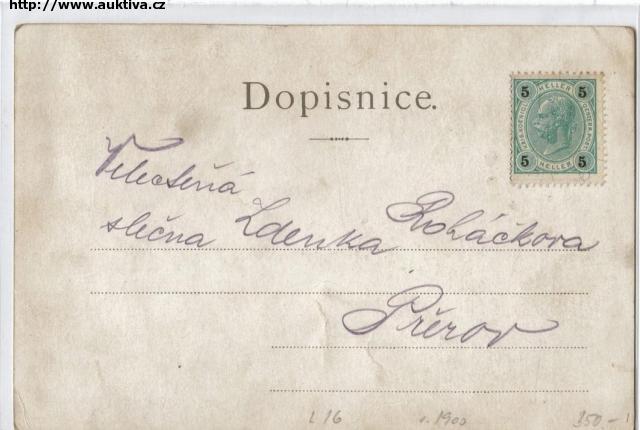 http://www.auktiva.cz
Dopisnice.
5 HELLER 5
5 HELLER 5
Velectěná
slečna Zdenka Roháčkova
Přerov
L 16 r. 1900 350.-